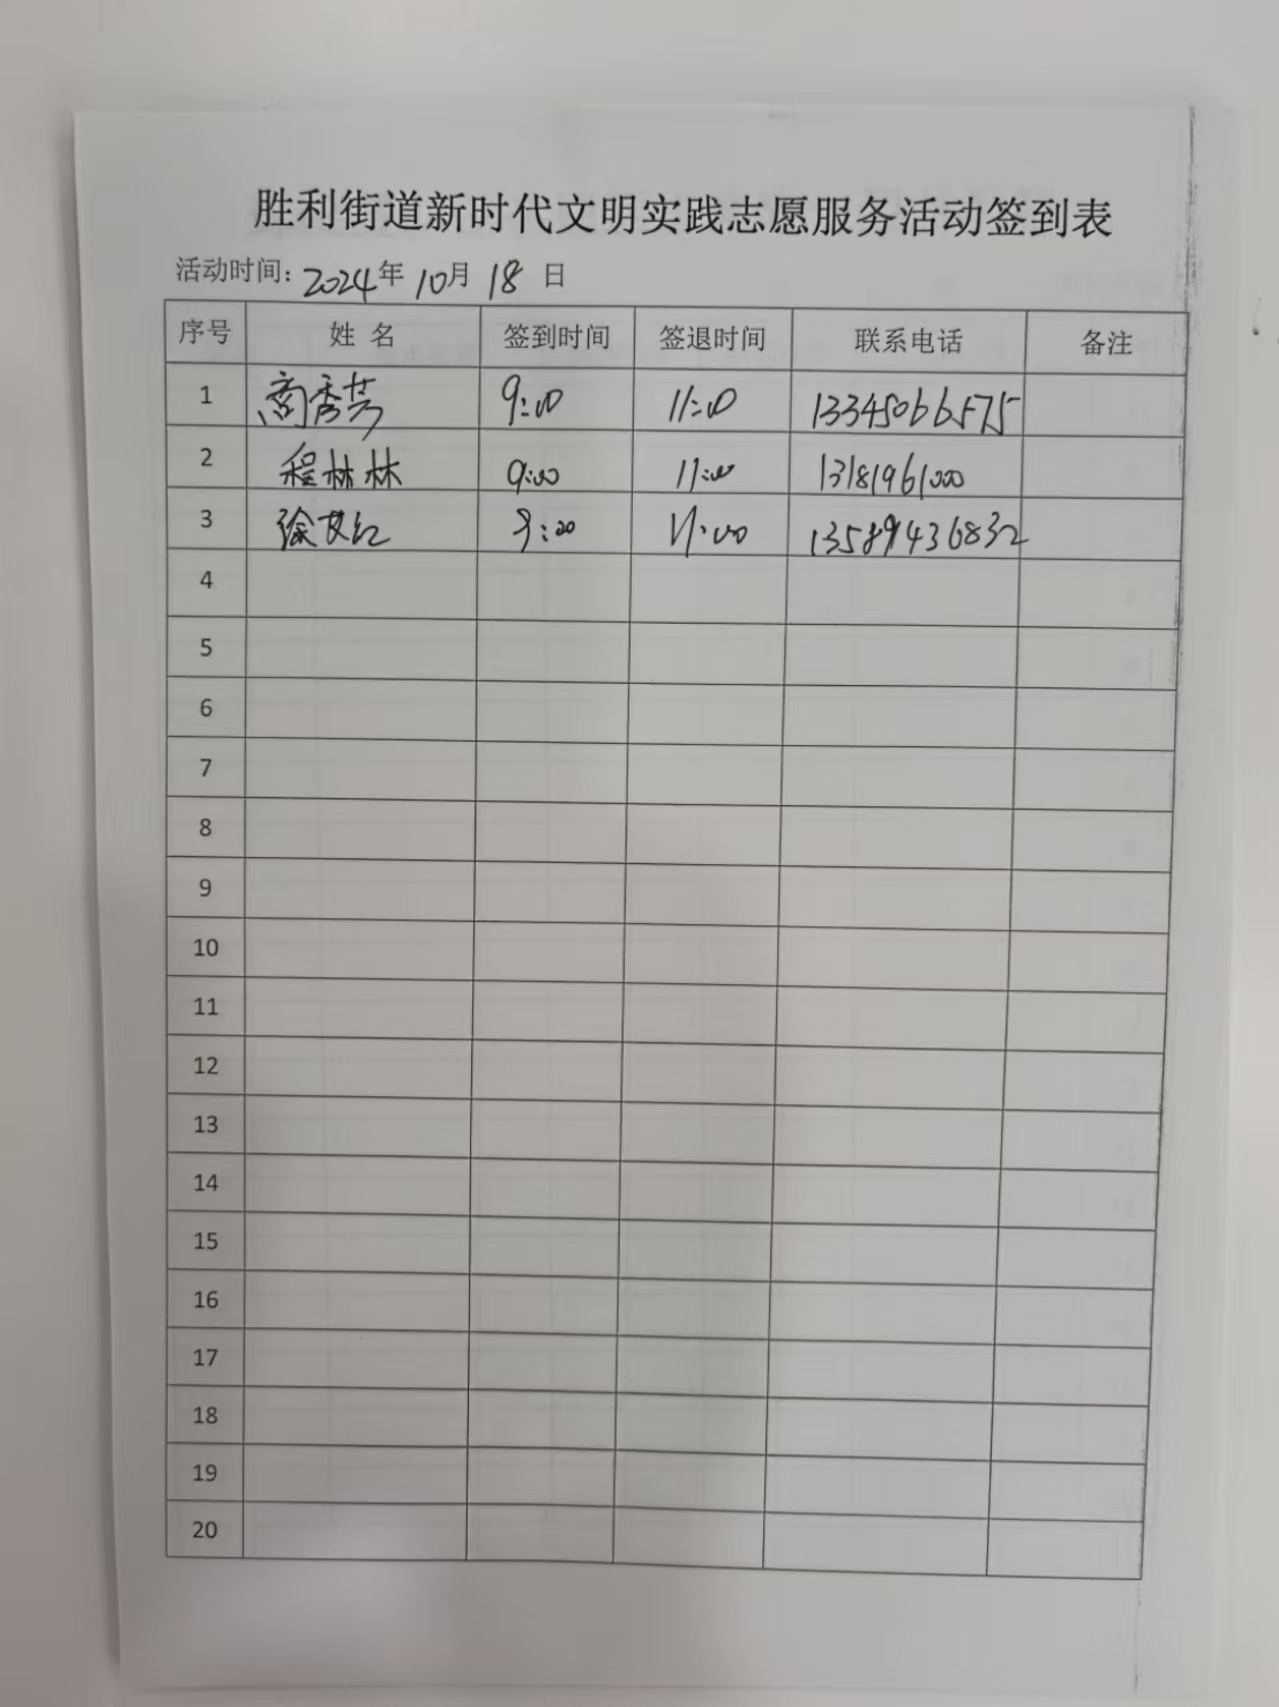 胜利街道新时代文明实践志愿服务活动签到表
活动时间：2024年 10月 18 日
序号 姓 名 签到时间 签退时间 联系电话 备注
1 商秀芳 9:00 11:00 13345066575
2 程林林 9:00 11:00 13181961000
3 徐艾红 9:00 11:00 13589436832
4
5
6
7
8
9
10
11
12
13
14
15
16
17
18
19
20